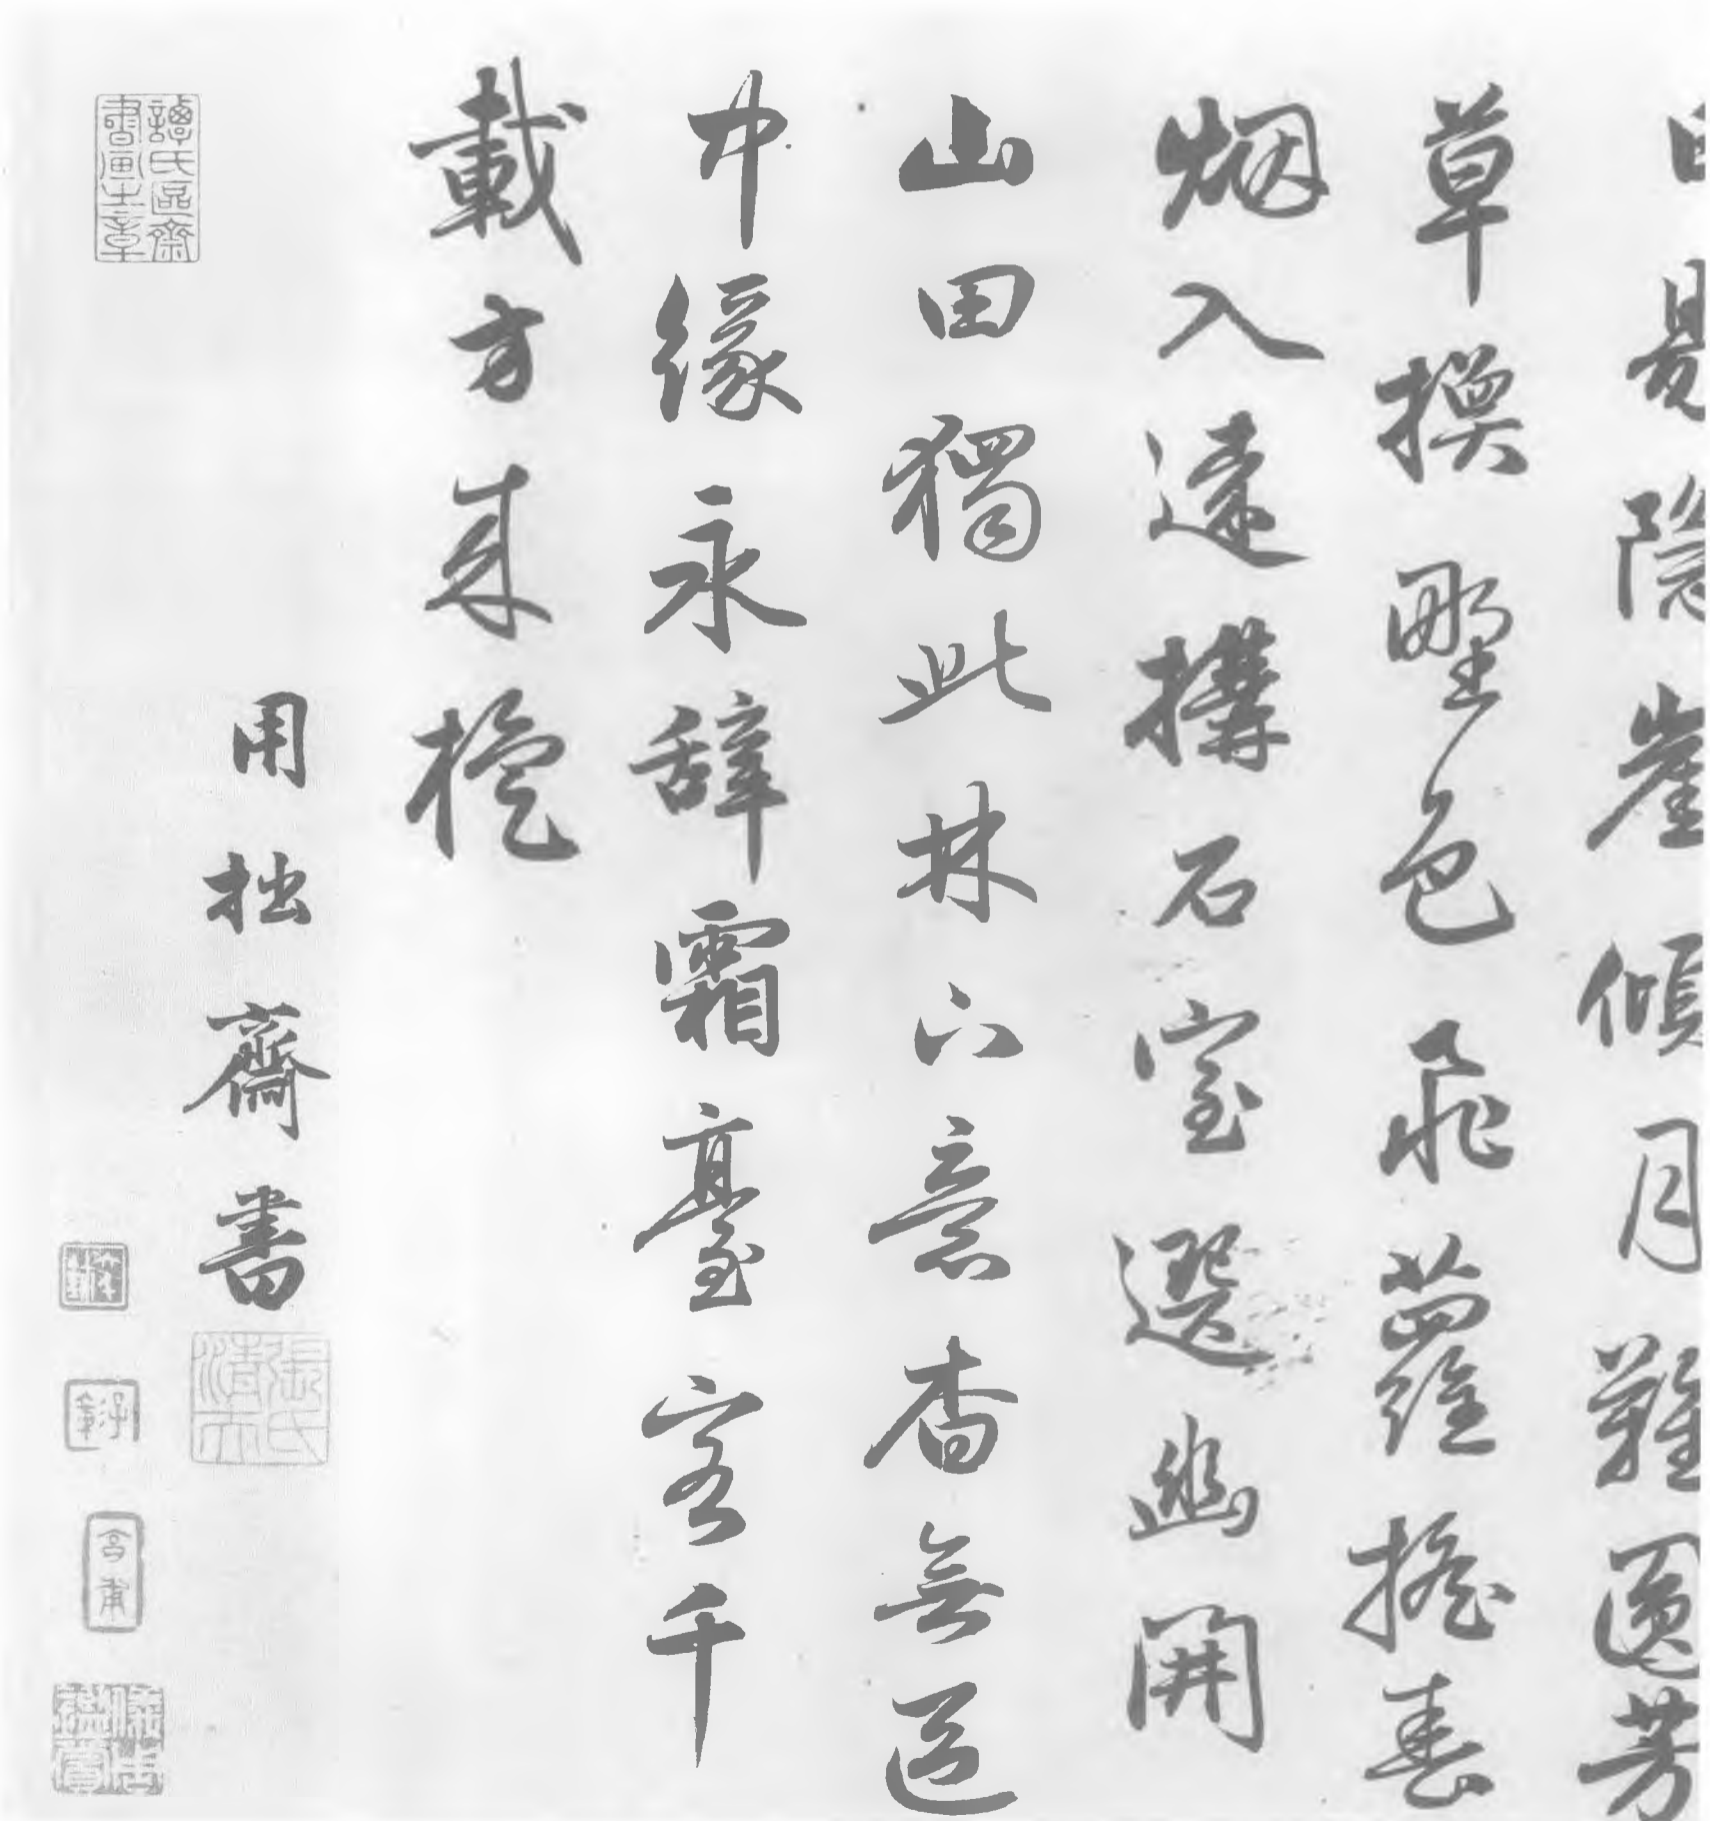 日易隱崖傾月難圓芳
草換野色飛蘿搖春
烟入遠搆石室選幽開
山田獨此林下意杳無區
中緣永辭霜臺客千
載方來旋
用拙齋書
譚氏區齋書畫之章